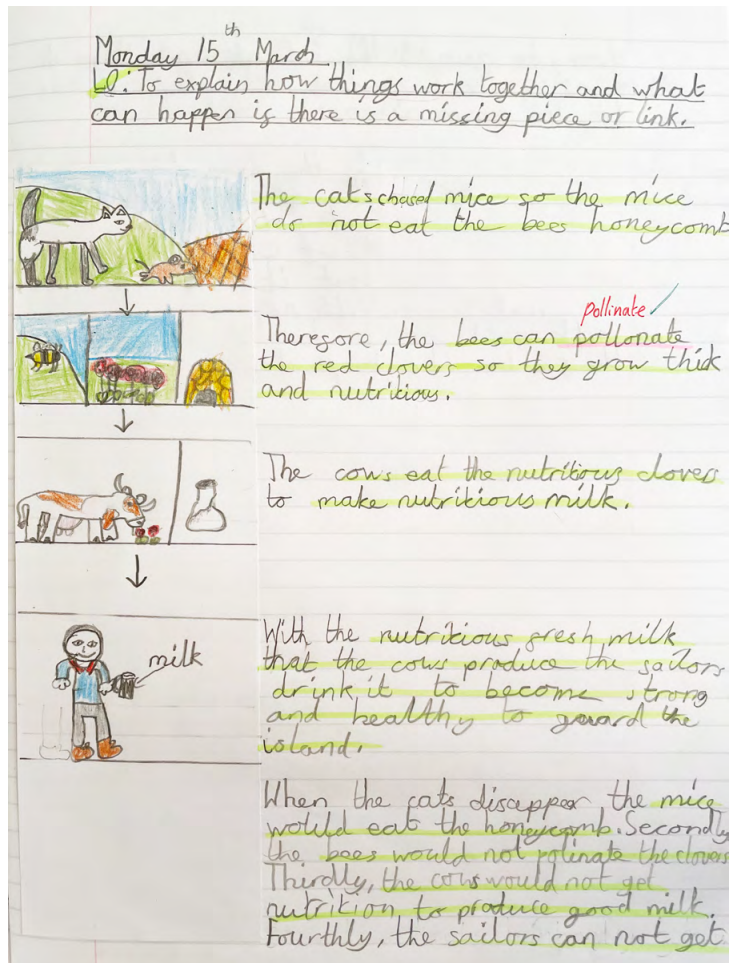 Monday 15th March
LO: To explain how things work together and what
can happen if there is a missing piece or link.
The cats chased mice so the mice
do not eat the bees honeycomb
pollinate ✓
Therefore, the bees can pollonate
the red clovers so they grow thick
and nutritious.
The cows eat the nutritious clovers
to make nutritious milk.
milk
With the nutritious fresh milk
that the cows produce the sailors
drink it to become strong
and healthy to guard the
island.
When the cats disappear the mice
would eat the honeycomb. Secondly
the bees would not polinate the clovers
Thirdly, the cows would not get
nutrition to produce good milk.
Fourthly, the sailors can not get